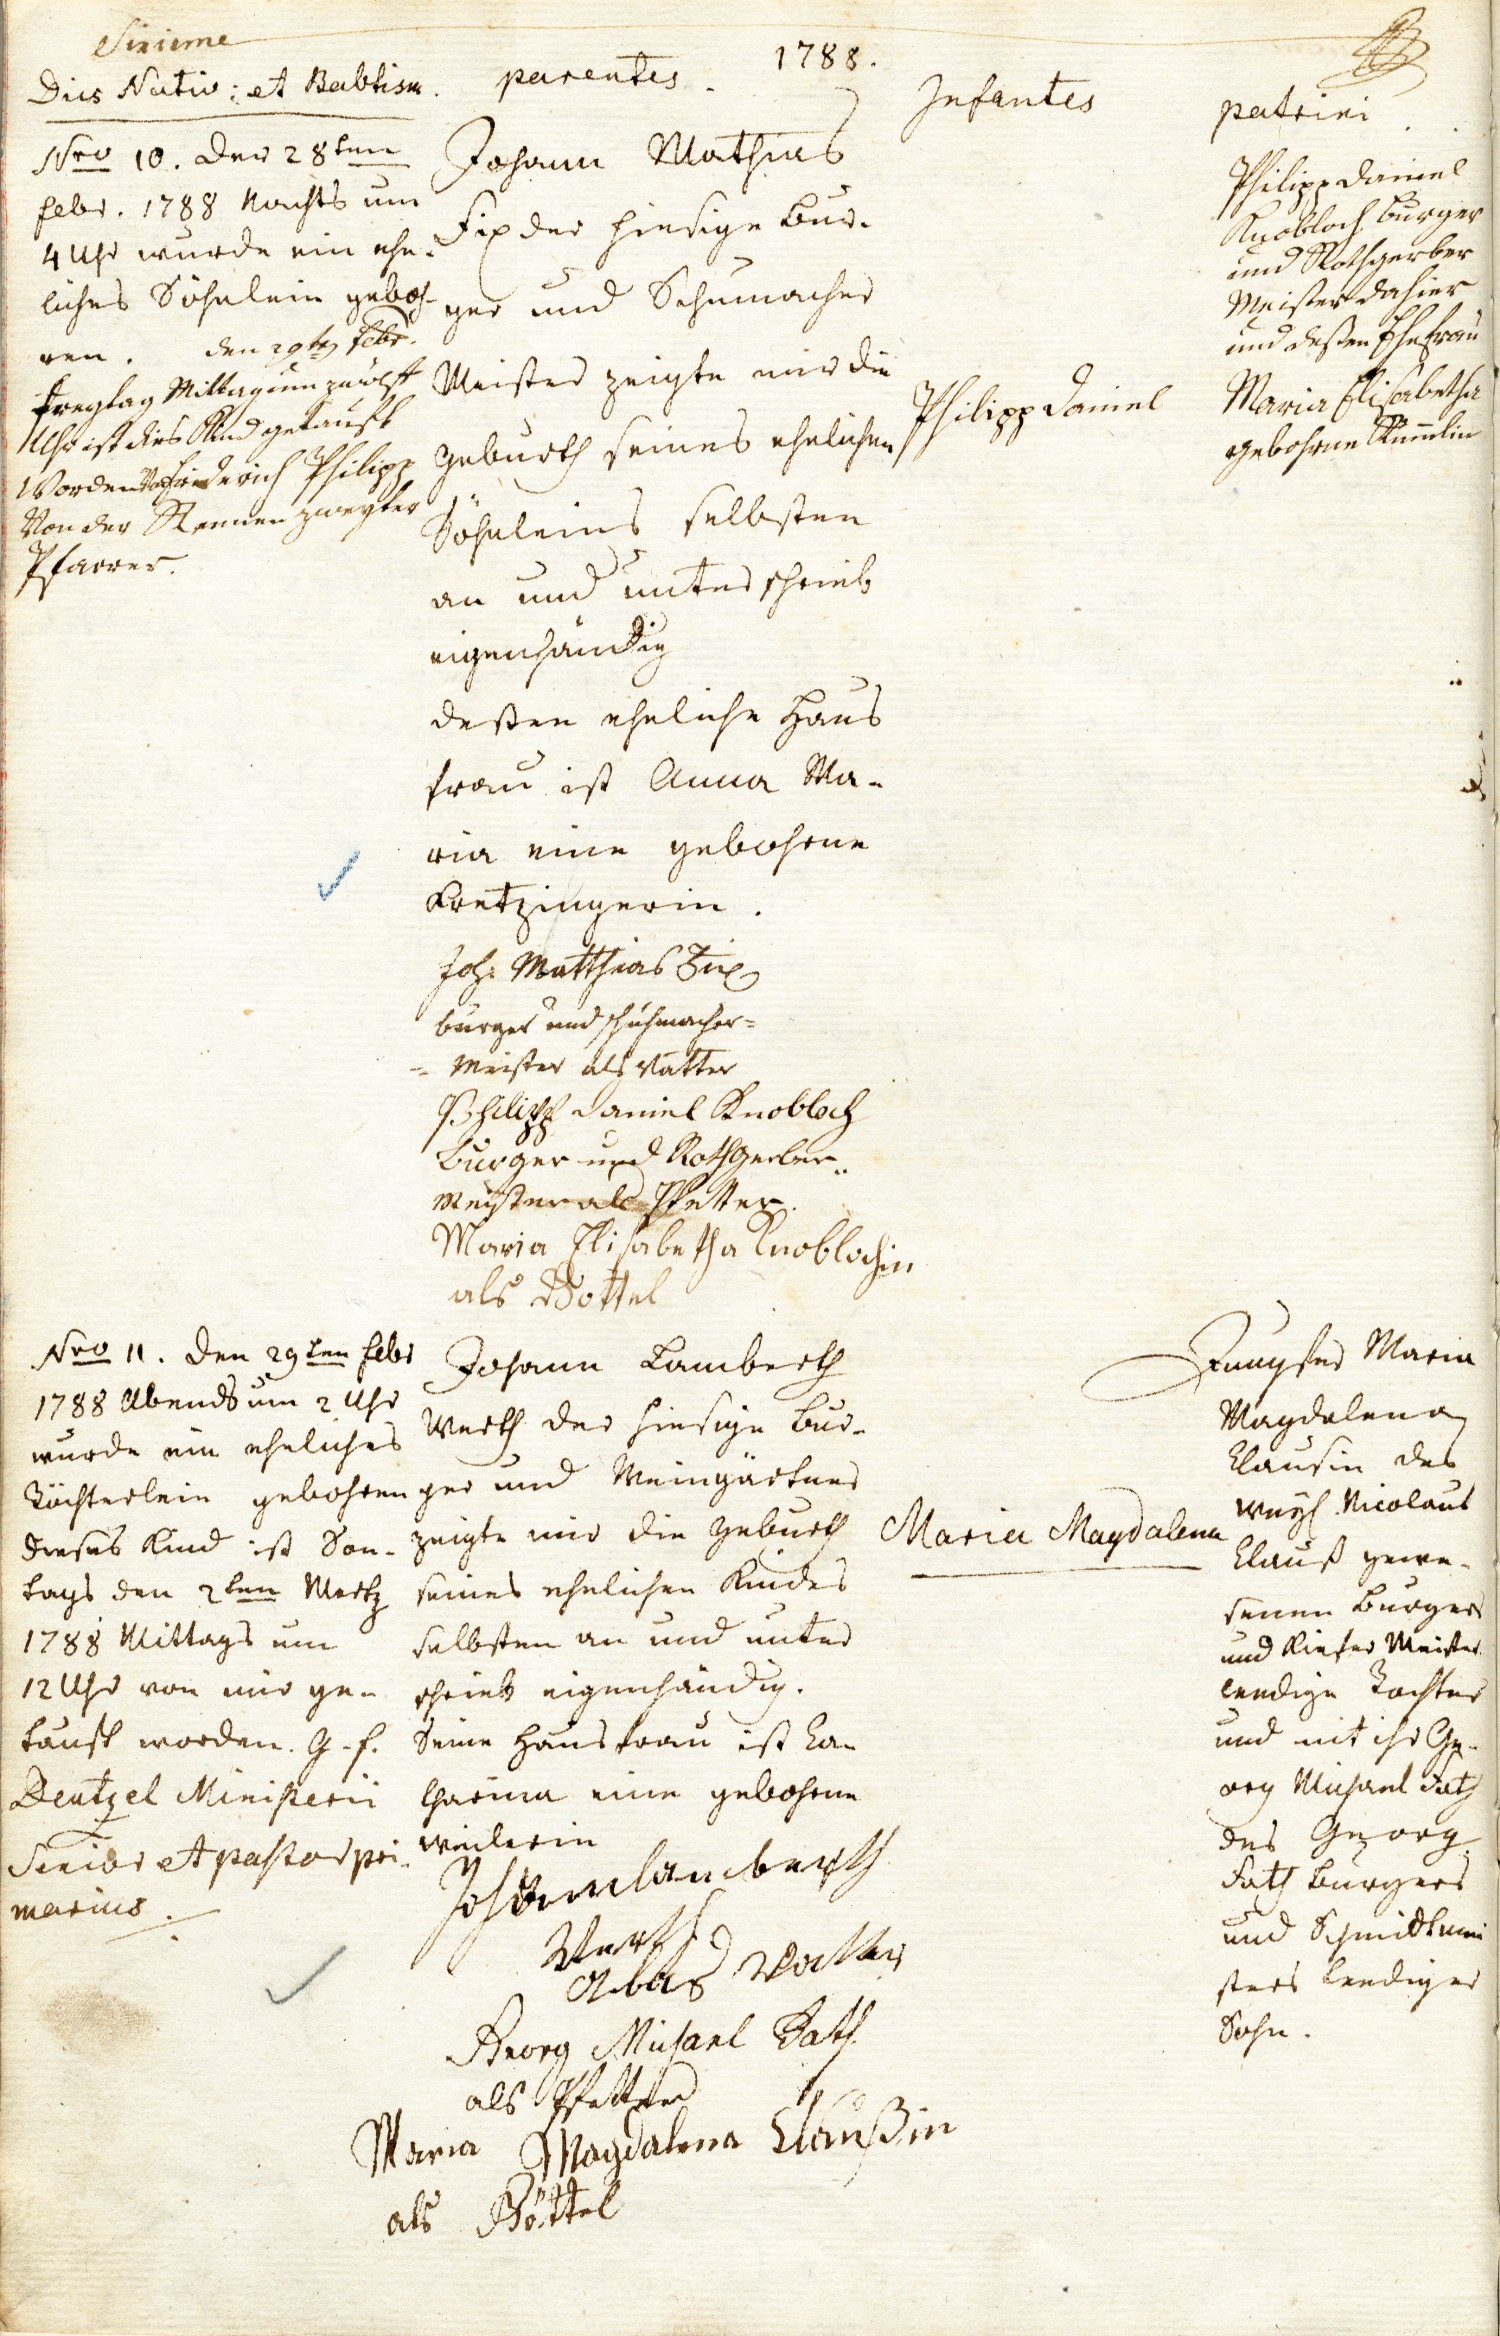 Sixieme
1788.
Dies Nativ: et Babtism.
parentes.
Infantes
patrini.
Nro 10. Den 28ten
febr. 1788 Nachts um
4 Uhr wurde ein ehe-
liches Söhnlein geboh-
ren. den 29ten febr.
freytag Mittag um zwölff
Uhr ist dies Kind getaufft
Worden Von Friederich Philipp
Von der Rennen zweyter
Pfarrer.
Johann Mathias
Fix der hiesige Bur-
ger und Schumacher
Meister zeigte mir die
Geburth seines ehelichen
Söhnleins selbsten
an und unterschrieb
eigenhändig
deßen eheliche Haus
frau ist Anna Ma-
ria eine gebohrne
Kretzingerin.
Joh: Matthias Fix
burger und schuhmacher=
= Meister als vatter
Philipp Daniel Knobloch
Burger und Rothgerber
Meister als Pfetter.
Maria Elisabetha Knoblochin
als Göttel
Philipp Daniel
Philipp Daniel
Knobloch burger
und Rothgerber
Meister dahier
und deßen Ehefrau
Maria Elisabetha
gebohrne
Nro 11. Den 29ten febr
1788 Abends um 2 Uhr
wurde ein eheliches
Töchterlein gebohren
dieses Kind ist Son-
tags den 2ten Mertz
1788 Mittags um
12 Uhr von mir ge-
taufft worden. G. f.
Deutzel Ministerii
Senior et pastor pri-
marius.
Johann Lamberth
Werth der hiesige Bur-
ger und Weingärtner
zeigte mir die Geburth
seines ehelichen Kindes
selbsten an und unter
schrieb eigenhändig.
Seine Hausfrau ist Ca-
tharina eine gebohrne
Weilerin
Johann lamberth
Werth
als Vatter
Georg Michael Fath
als Pfetter
Maria Magdalena Claußin
als Göttel
Maria Magdalena
Jungfer Maria
Magdalena
Clausin des
weyl. Nicolaus
Clauß gewe-
senen Burgers
und Kiefer Meister
leedige Tochter
und mit ihr Ge-
org Michael Fath
des Georg
Fath Burgers
und Schmidtmei
sters leediger
Sohn.